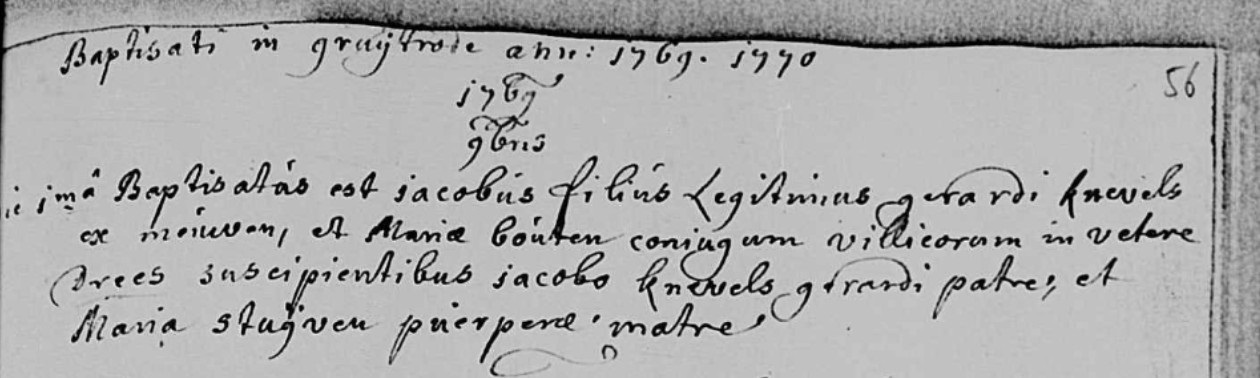 Baptisati in gruijtrode ann: 1769. 1770
56
1769
9bris
imâ Baptisatus est jacobus filius Legitimus gerardi knevels
ex meuwen, et Mariæ bouten conjugum villicorum in vetere
Drees suscipientibus jacobo knevels gerardi patre, et
Maria stuijven puerperæ matre